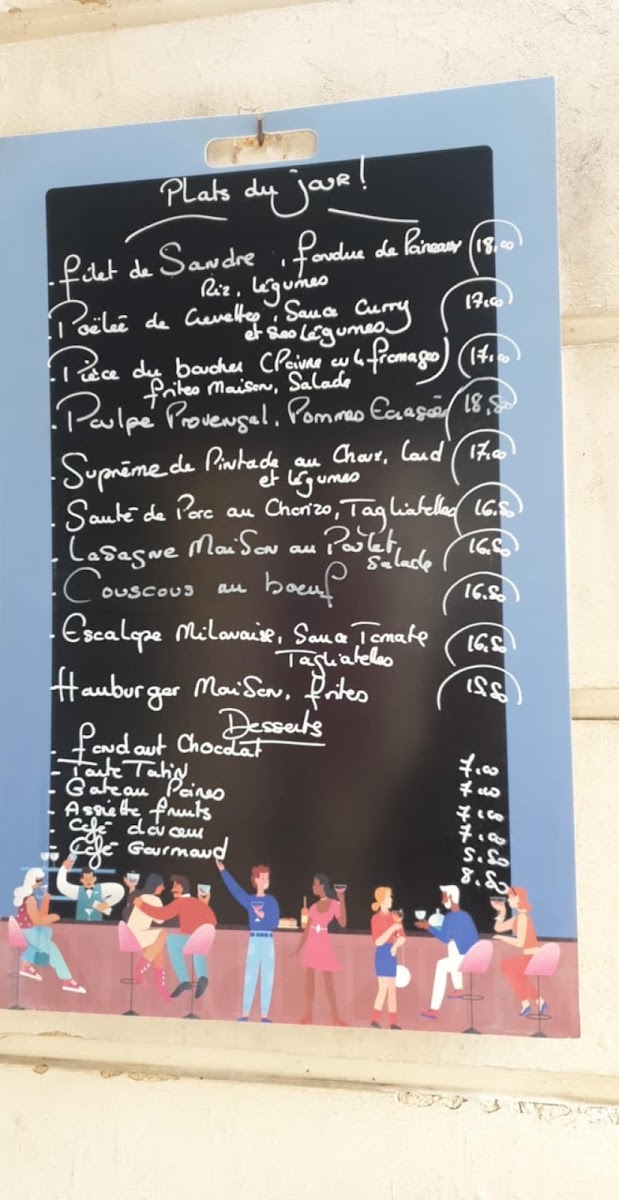 Plats du jour !
- filet de Sandre, fondue de Poireaux 18.00
Riz, légumes
- Poëlée de Crevettes, Sauce Curry 17.00
et ses légumes
- Pièce du boucher (Poivre ou 4 fromages) 17.00
frites Maison, Salade
- Poulpe Provençal, Pommes Ecrasées 18,80
- Suprême de Pintade au Chour, Lard 17.00
et légumes
- Sauté de Porc au Chorizo, Tagliatelles 16.80
- Lasagne Maison au Poulet 16.80
Salade
- Couscous au boeuf 16.80
- Escalope Milanaise, Sauce Tomate 16.80
Tagliatelles
- Hamburger Maison, frites 15.80
Desserts
- fondant Chocolat 7.00
- Tarte Tatin 7.00
- Gateau Poires 7.00
- Assiette fruits 7.00
- Café douceur 5.80
- Café Gourmand 8.80